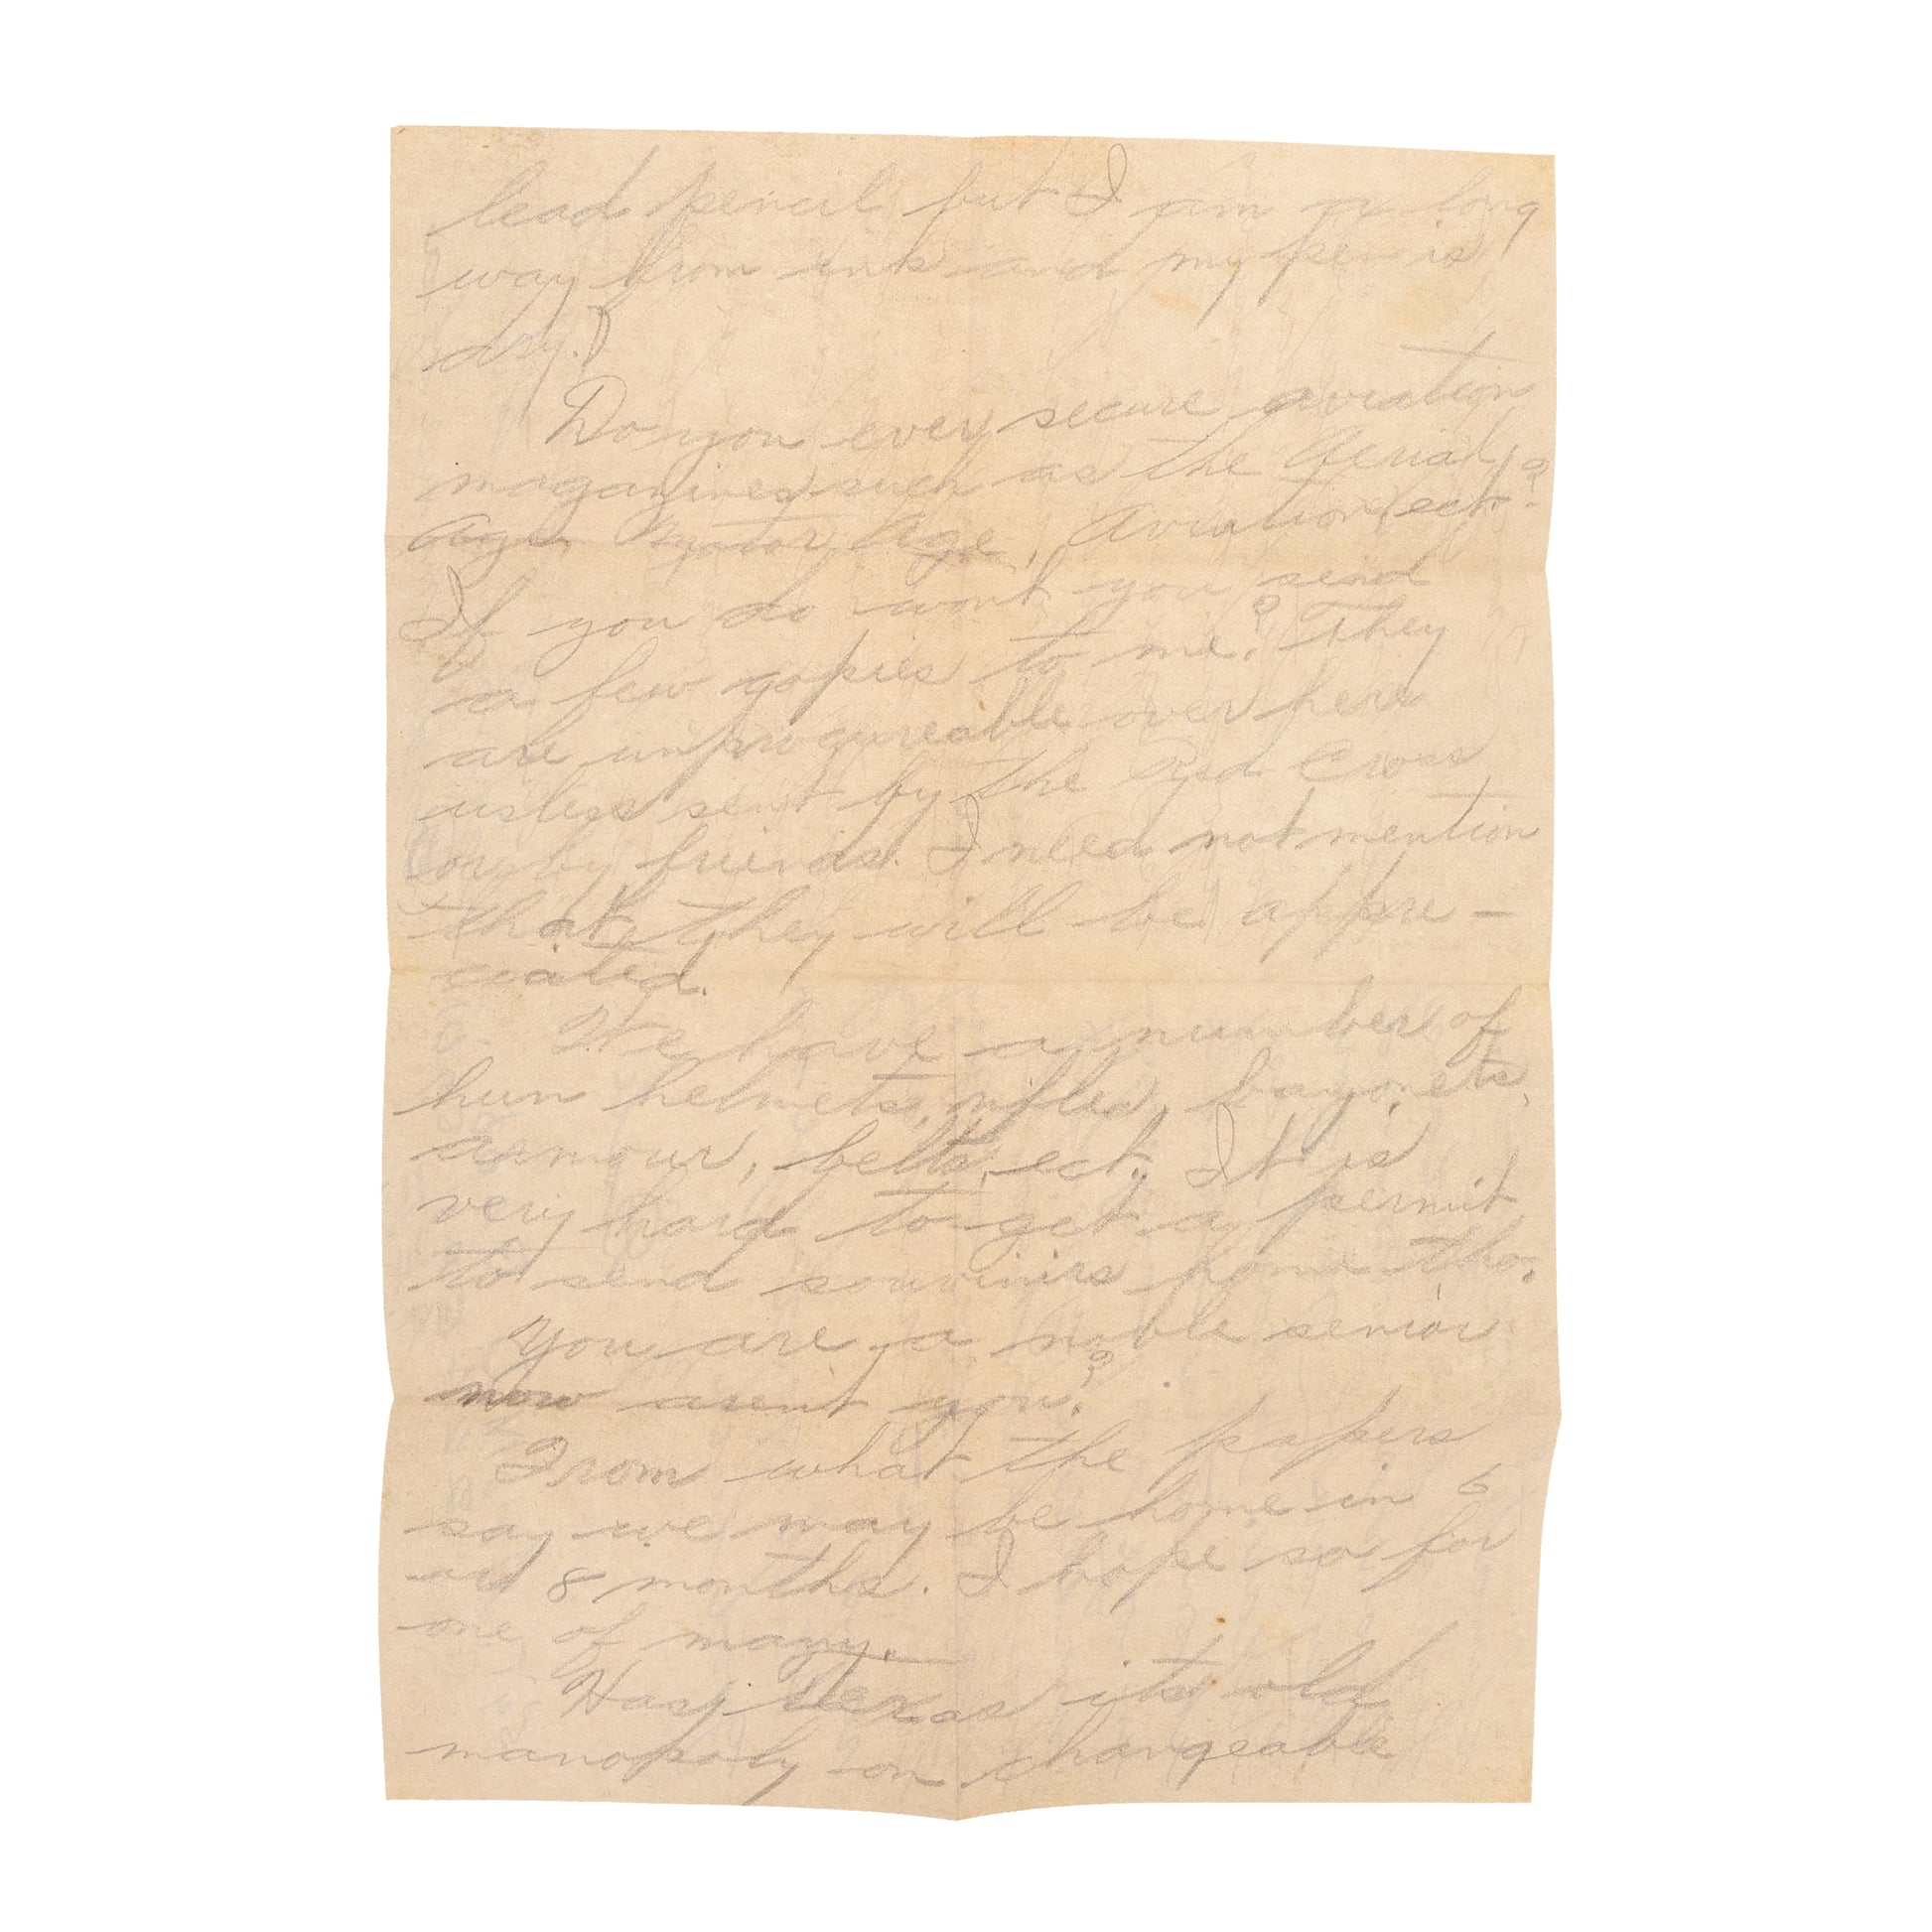 lead pencil but I am a long
way from ink and my pen is
dry.)
Do you ever secure aviation
magazines such as the Aerial
Age, Motor Age, Aviation, ect.?
If you do wont you send
a few copies to me? They
are unprocureable over here
usless sent by the Red Cross
or by friends. I need not mention
that they will be appre-
ciated.
We have a number of
hun helmets, rifles, bayonets,
armour, belts, ect. It is
very hard to get a permit
to send souvinirs home tho.
You are a noble senior
now arent you?
From what the papers
say we may be home in 6
or 8 months. I hope so for
one of many.
Has Texas its old
manopoly on changeable